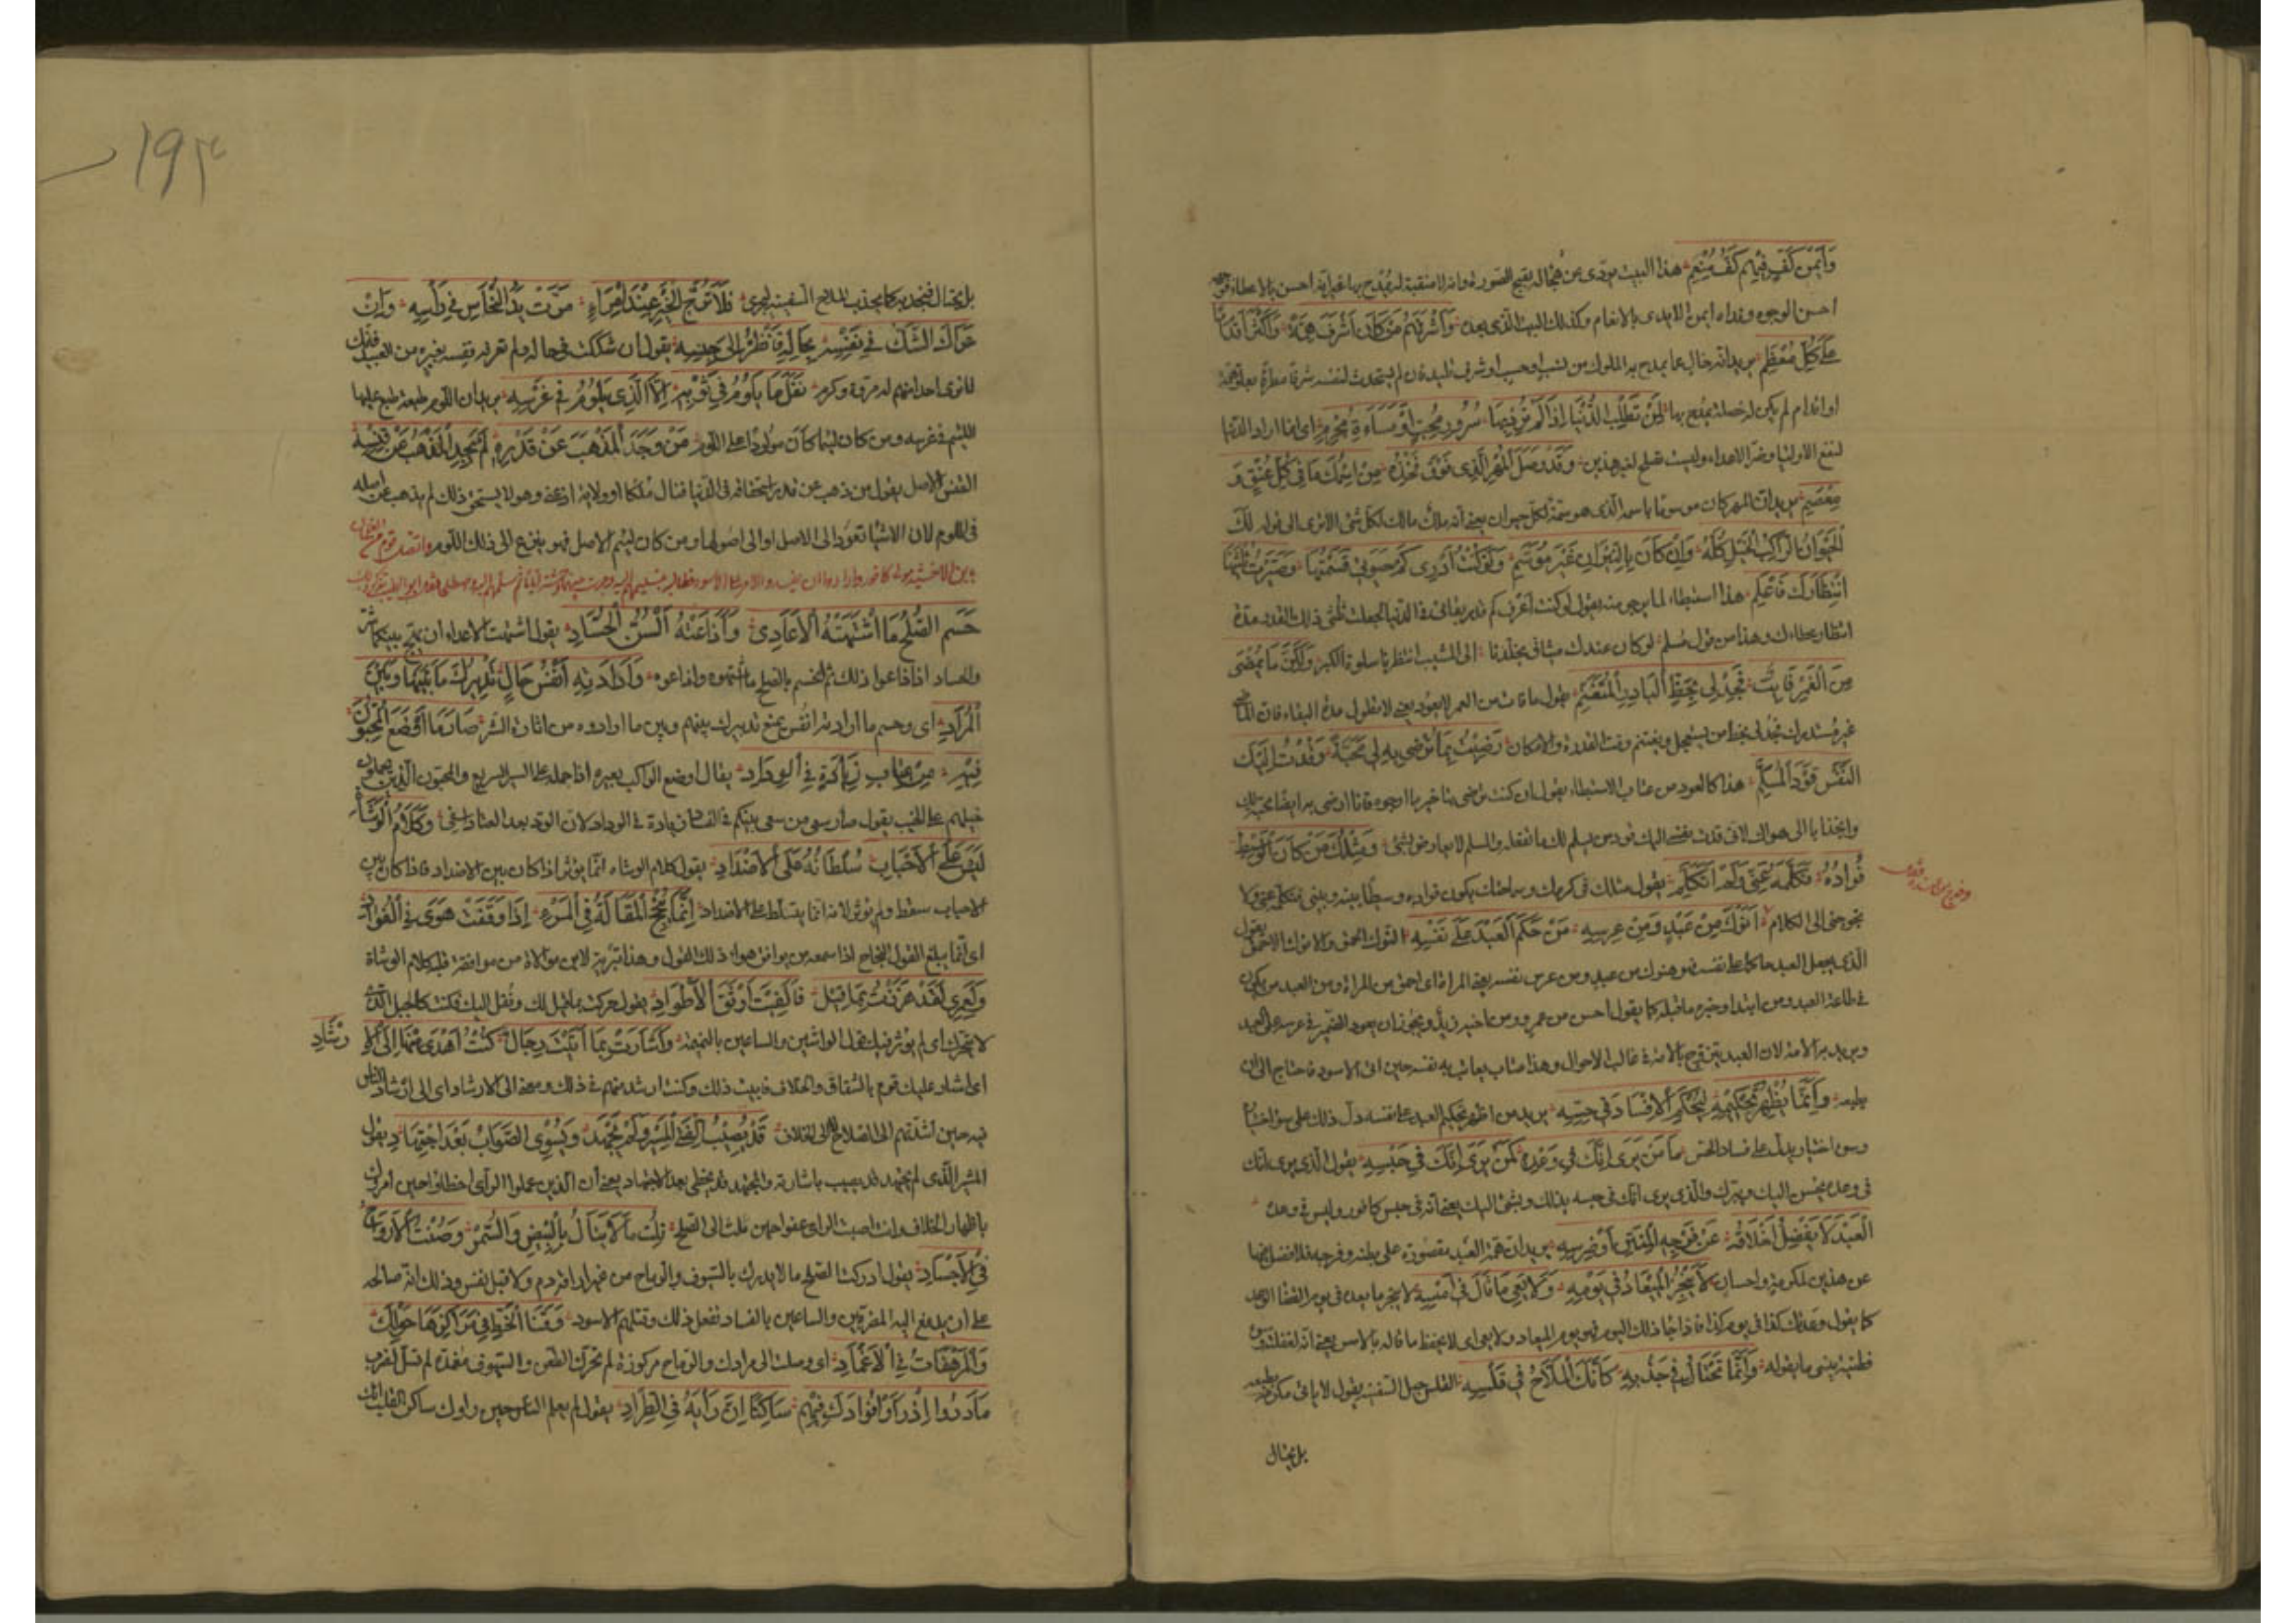 وَأَيْمَنَ كَفٍّ فِيهِمُ كَفُّ مُنْعِمِ هذا البيت مؤدى عن هجاله بقبح الصورة وانه لا منقبة له يمدح بها غير انه احسن بالاعطاء
احسن الوجوه ويداه ايمن الايدى بالانعام وكذلك البيت الذى بعده وَأَشْرَفَهُمْ مَنْ كَانَ أَشْرَفَ هِمَّةً وَأَكْثَرَ إِقْدَامًا
عَلَى كُلِّ مُعْظَمِ يريد انه خال عما يمدح به الملوك من نسب او حسب او شرف تليد فان لم يستحدث لنفسه شرفا مطرفا بعلو همة
او اقدام لم يكن له خصلة يمدح بها لِمَنْ تَطْلُبُ الدُّنْيَا إِذَا لَمْ تُرِدْ بِهَا سُرُورَ مُحِبٍّ أَوْ مَسَاءَةَ مُجْرِمِ اى انما اراد الدنيا
لنفع الاولياء وضر الاعداء وليست تصلح لغير هذين وَقَدْ وَصَلَ الْمُهْرُ الَّذِى فَوْقَ فَخْذِهِ مِنِ اسْمِكَ مَا فِى كُلِّ عُنْقٍ وَ
مِعْصَمِ يريد ان المهر كان موسوما باسمه الذى هو سمة لكل حيوان يعنى انه ملك مالك لكل شئ الا ترى الى قوله لَكَ
الْحَيَوَانُ الرَّاكِبُ الْخَيْلَ كُلُّهُ وَإِنْ كَانَ بِالنِّيرَانِ غَيْرَ مُوَسَّمِ وَلَوْ كُنْتُ أَدْرِى كَمْ حَيَوتِى قَسَمْتُهَا وَصَيَّرْتُ ثُلْثَيْهَا
انْتِظَارَكَ فَاعْلَمِ هذا استبطاء لما يرجى منه يقول لو كنت اعرف كم قدر بقائى فى الدنيا لجعلت ثلثى ذلك القدر مدة
انتظار عطاءك وهذا من قول مسلم لو كان عندك ميثاق يخلدنا الى المشيب انتظرنا سلوة الكبر وَلَكِنَّ مَا يَمْضِى
مِنَ الْعُمْرِ فَائِتٌ فَجُدْ لِى بِحَظِّ الْبَادِرِ الْمُتَغَنِّمِ يقول ما فات من العمر لا يعود يعنى لا تطول مدة البقاء فان الماضى
غير مستدرك فجد لى بحظ من يستعجل ويغتنم وقت القدرة والامكان رَضِيتُ بِمَا تَرْضَى بِهِ لِى مَحَبَّةً وَقُدْتُ إِلَيْكَ
النَّفْسَ قَوْدَ الْمُسَلِّمِ هذا كالعود من عتاب الاستبطاء يقول ان كنت ترضى بتاخير ما ارجوه فانا ارضى به ايضا محبة لك
وانجذابا الى هواك لانى قدت نفسى اليك قود من يسلم لك ما تفعله والمسلم لا يعارض لشئ وَمِثْلُكَ مَنْ كَانَ الْوَسِيطَ
فُؤَادُهُ فَكَلَّمَهُ عَنِّى وَلَمْ أَتَكَلَّمِ يقول مثلك فى كرمك وسماحتك يكون فؤاده وسيطا بينه وبينى فتكلم عنى ولا
يحوجنى الى الكلام أَنْوَكُ مِنْ عَبْدٍ وَمِنْ عِرْسِهِ مَنْ حَكَّمَ الْعَبْدَ عَلَى نَفْسِهِ النوك الحمق والانوك الاحمق يقول
الذى يجعل العبد حاكما على نفسه فهو انوك من عبد ومن عرس نفسه يعنى المراة اى احمق من المراة ومن العبد من يكون
فى طاعة العبد ومن ابتداء وخبره ما قبله كما يقول احسن من عمرو ومن اخيه زيد ويجوز ان يعود الضمير فى عرسه على العبد
ويريد به الامة لان العبد يتزوج بالامة فى غالب الاحوال وهذا عتاب يعاتب به نفسه حين اتى الاسود فاحتاج الى ان
يطيعه وَإِنَّمَا يُظْهِرُ تَحْكِيمُهُ لِيَحْكُمَ الْإِفْسَادُ فِى حِسِّهِ يريد من اظهر تحكيم العبد على نفسه دل ذلك على سوء اختيار
وسوء اختيار يدل على فساد الحس مَا مَنْ يَرَى أَنَّكَ فِى وَعْدِهِ كَمَنْ يَرَى أَنَّكَ فِى حَبْسِهِ يقول الذى يرى انك
فى وعده يحسن اليك ويبرك والذى يرى انك فى حبسه يذلك ويسئ اليك يعنى انه فى حبس كافور وليس فى وعده
الْعَبْدُ لَا تَفْضُلُ أَخْلَاقُهُ عَنْ فَرْجِهِ الْمُنْتِنِ أَوْ ضِرْسِهِ يريد ان همة العبد مقصورة على بطنه وفرجه فلا فضل فيها
عن هذين لمكرمة واحسان لَا يُنْجِزُ الْمِيعَادَ فِى يَوْمِهِ وَلَا يَعِى مَا قَالَ فِى أَمْسِهِ لا ينجز ما يعده فى يوم القضاء الوعد
كما يقول وعدتك كذا فى يوم كذا فاذا جاء ذلك اليوم فهو يوم الميعاد ولا يعى اى لا يحفظ ما قاله بالامس يعنى انه لغفلته وسوء
فطنته ينسى ما يقوله وَإِنَّمَا تَحْتَالُ فِى جَذْبِهِ كَأَنَّكَ الْمَلَّاحُ فِى قَلْسِهِ القلس حبل السفينة يقول لا ياتى مكرمة بطبعه
بل يحتال
بل يحتال فتجذبه كما يجذب الملاح السفينة لتجرى فَلَا تُرَجِّ الْخَيْرَ عِنْدَ امْرِءٍ مَرَّتْ يَدُ النَّخَّاسِ فِى رَأْسِهِ وَإِنْ
عَرَاكَ الشَّكُّ فِى نَفْسِهِ بِحَالِهِ فَانْظُرْ إِلَى جِنْسِهِ يقول ان شككت فى حاله ولم تعرفه فقسه بغيره من العبيد فانك
لا ترى احدا منهم له مروة وكرم فَقَلَّ مَا يَلْؤُمُ فِى ثَوْبِهِ إِلَّا الَّذِى يَلْؤُمُ فِى غِرْسِهِ يريد ان اللوم طبيعة طبع عليها
اللئيم فى غرسه ومن كان لئيما كان مولودا على اللوم مَنْ وَجَدَ الْمَذْهَبَ عَنْ قَدْرِهِ لَمْ يَجِدِ الْمَذْهَبَ عَنْ قَنْسِهِ
القنس الاصل يقول من ذهب عن قدر استحقاقه فى الدنيا فنال ملكا او ولاية او غنى وهو لا يستحق ذلك لم يذهب عن اصله
فى اللوم لان الاشياء تعود الى الاصل او الى اصولها ومن كان لئيم الاصل فهو ينزع الى ذلك اللوم واتصل قوم من الغلمان
بابن الاخشيد مولى كافور وارادوا ان يفسدوا الامر على الاسود فطالبه بتسليمهم اليه
حَسَمَ الصُّلْحُ مَا اشْتَهَتْهُ الْأَعَادِى وَأَذَاعَتْهُ أَلْسُنُ الْحُسَّادِ يقول اشتهت الاعداء ان يهيج بينكما شر
والحساد اذاعوا ذلك ثم انحسم بالصلح ما اشتهوه واذاعوه وَأَرَادَتْهُ أَنْفُسٌ حَالَ تَدْبِيرُكَ مَا بَيْنَهَا وَبَيْنَ
الْمُرَادِ اى وحسم ما ارادته انفس منع تدبيرك بينهم وبين ما ارادوه من اثارة الشر صَارَ مَا أَوْضَعَ الْمُخِبُّونَ
فِيهِ مِنْ عِتَابٍ زِيَادَةً فِى الْوِدَادِ يقال اوضع الراكب بعيره اذا حمله على السير السريع والمخبون الذين يحملون
خيلهم على الخبب يقول صار سعى من سعى بينكم فى الفساد زيادة فى الوداد لان الود بعد العتاب اصفى وَكَلَامُ الْوُشَاةِ
لَيْسَ عَلَى الْأَحْبَابِ سُلْطَانُهُ عَلَى الْأَضْدَادِ يقول كلام الوشاة انما يؤثر اذا كان بين الاضداد فاذا كان بين
الاحباب سقط ولم يؤثر لانه انما يتسلط على الاضداد إِنَّمَا تُنْجِحُ الْمَقَالَةُ فِى الْمَرْءِ إِذَا وَافَقَتْ هَوًى فِى الْفُؤَادِ
اى انما يبلغ القول النجاح اذا سمعه من يوافق هواه ذلك القول وهذا تبرئة لابن مولاه من موافقة قلبه كلام الوشاة
وَلَعَمْرِى لَقَدْ هُزِزْتَ بِمَا قِيلَ فَأُلْفِيتَ أَوْثَقَ الْأَطْوَادِ يقول حركت بما قيل لك ونقل اليك فكنت كالجبل الذى
لا يتحرك اى لم يؤثر فيك قول الواشين والساعين بالنميمة وَأَشَارَتْ بِمَا أَبَيْتَ رِجَالٌ كُنْتَ أَهْدَى مِنْهَا إِلَى الْإِ
رْشَادِ
اى اشار عليك قوم بالشقاق والخلاف فابيت ذلك وكنت ارشد منهم فى ذلك ومعنى الى الارشاد اى الى ارشاد الناس
فيه حين ارشدتهم الى الصلاح لا الى الخلاف قَدْ يُصِيبُ الْفَتَى الْمُشِيرُ وَلَمْ يَجْهَدْ وَيُشْوِى الصَّوَابَ بَعْدَ اجْتِهَادِ يقول
المشير الذى لم يجتهد قد يصيب باشارته والمجتهد قد يخطى بعد الاجتهاد يعنى ان الذين عملوا الرأى اخطئوا حين امروك
باظهار الخلاف وانت اصبت الراى عفوا حين ملت الى الصلح نِلْتَ مَا لَا يُنَالُ بِالْبِيضِ وَالسُّمْرِ وَصُنْتَ الْأَرْوَاحَ
فِى الْأَجْسَادِ يقول ادركت بالصلح ما لا يدرك بالسيوف والرماح من غير اراقة دم ولا قتل نفس وذلك انه صالحه
على ان يدفع اليه المفرقين والساعين بالفساد ففعل ذلك وقتلهم الاسود وَقَنَا الْخَطِّ فِى مَرَاكِزِهَا حَوْلَكَ
وَالْمُرْهَفَاتُ فِى الْأَغْمَادِ اى وصلت الى مرادك والرماح مركوزة لم تحرك للطعن والسيوف مغمدة لم تسل لضرب
مَا دَرَوْا إِذْ رَأَوْا فُؤَادَكَ فِيهِمْ سَاكِنًا أَنَّ رَأْيَهُ فِى الطِّرَادِ يقول لم يعلم الناس حين راوك ساكن القلب انك